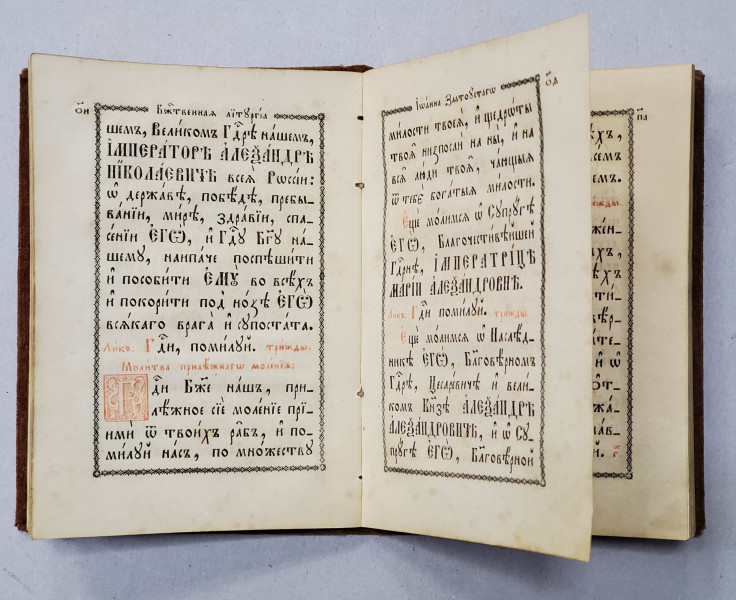 ѻ҃и Бж҃твенная літꙋргіа
шемъ, Великомъ Гдⷭ҇рѣ на́шемъ,
ІМПЕРАТОРѢ АЛЕѮАНДРѢ
НІКОЛАЕВИЧѢ всеѧ̀ Рѡссі́и:
ѡ҆ держа́вѣ, побѣ́дѣ, пребы-
ва́нїи, ми́рѣ, здра́вїи, спа-
се́нїи ЕГѠ̀, и҆ Гдⷭ҇ꙋ Бг҃ꙋ на́-
шемꙋ, наипа́че поспѣши́ти
и҆ пособи́ти ЕМꙊ̀ во всѣ́хъ
и҆ покори́ти под но́зѣ ЕГѠ̀
всѧ́каго врага̀ и҆ сꙋпоста́та.
Ли́къ: Гдⷭ҇и, поми́лꙋй. три́жды.
Моли́тва прилѣ́жнагѡ моле́нїѧ:
Гдⷭ҇и Бж҃е на́шъ, при-
лѣ́жное сїѐ моле́нїе прї-
имѝ ѿ твои́хъ ра̑бъ, и҆ по-
ми́лꙋй на́съ, по мно́жествꙋ
Іѡанна Златоꙋстагѡ
ми́лости твоеѧ̀, и҆ щедрѡ́ты
твоѧ̑ низпослѝ на ны̀, и҆ на
всѧ̑ лю́ди твоѧ̑, ча́ющыѧ
ѿ тебє̀ бога́тыѧ ми́лости.
Е҆щѐ мо́лимсѧ ѡ҆ Сꙋпрꙋ́гѣ
ЕГѠ̀, Благочести́вѣйшей
Гдⷭ҇рнѣ, ІМПЕРАТРІЦѢ
МАРІИ АЛЕѮАНДРОВНѢ.
Ли́къ: Гдⷭ҇и поми́лꙋй. три́жды
Е҆щѐ мо́лимсѧ ѡ҆ Наслѣ́д-
никѣ ЕГѠ̀, Бл҃говѣ́рномъ
Гдⷭ҇рѣ, Цесаре́вичѣ и҆ вели́-
комъ Кнѧ҃зѣ АЛЕѮАНДРѢ
АЛЕѮАНДРОВИЧѢ, и҆ ѡ҆ Сꙋ-
прꙋ́гѣ ЕГѠ̀, Бл҃говѣ́рной
п҃а
ѣхъ,
семъ.